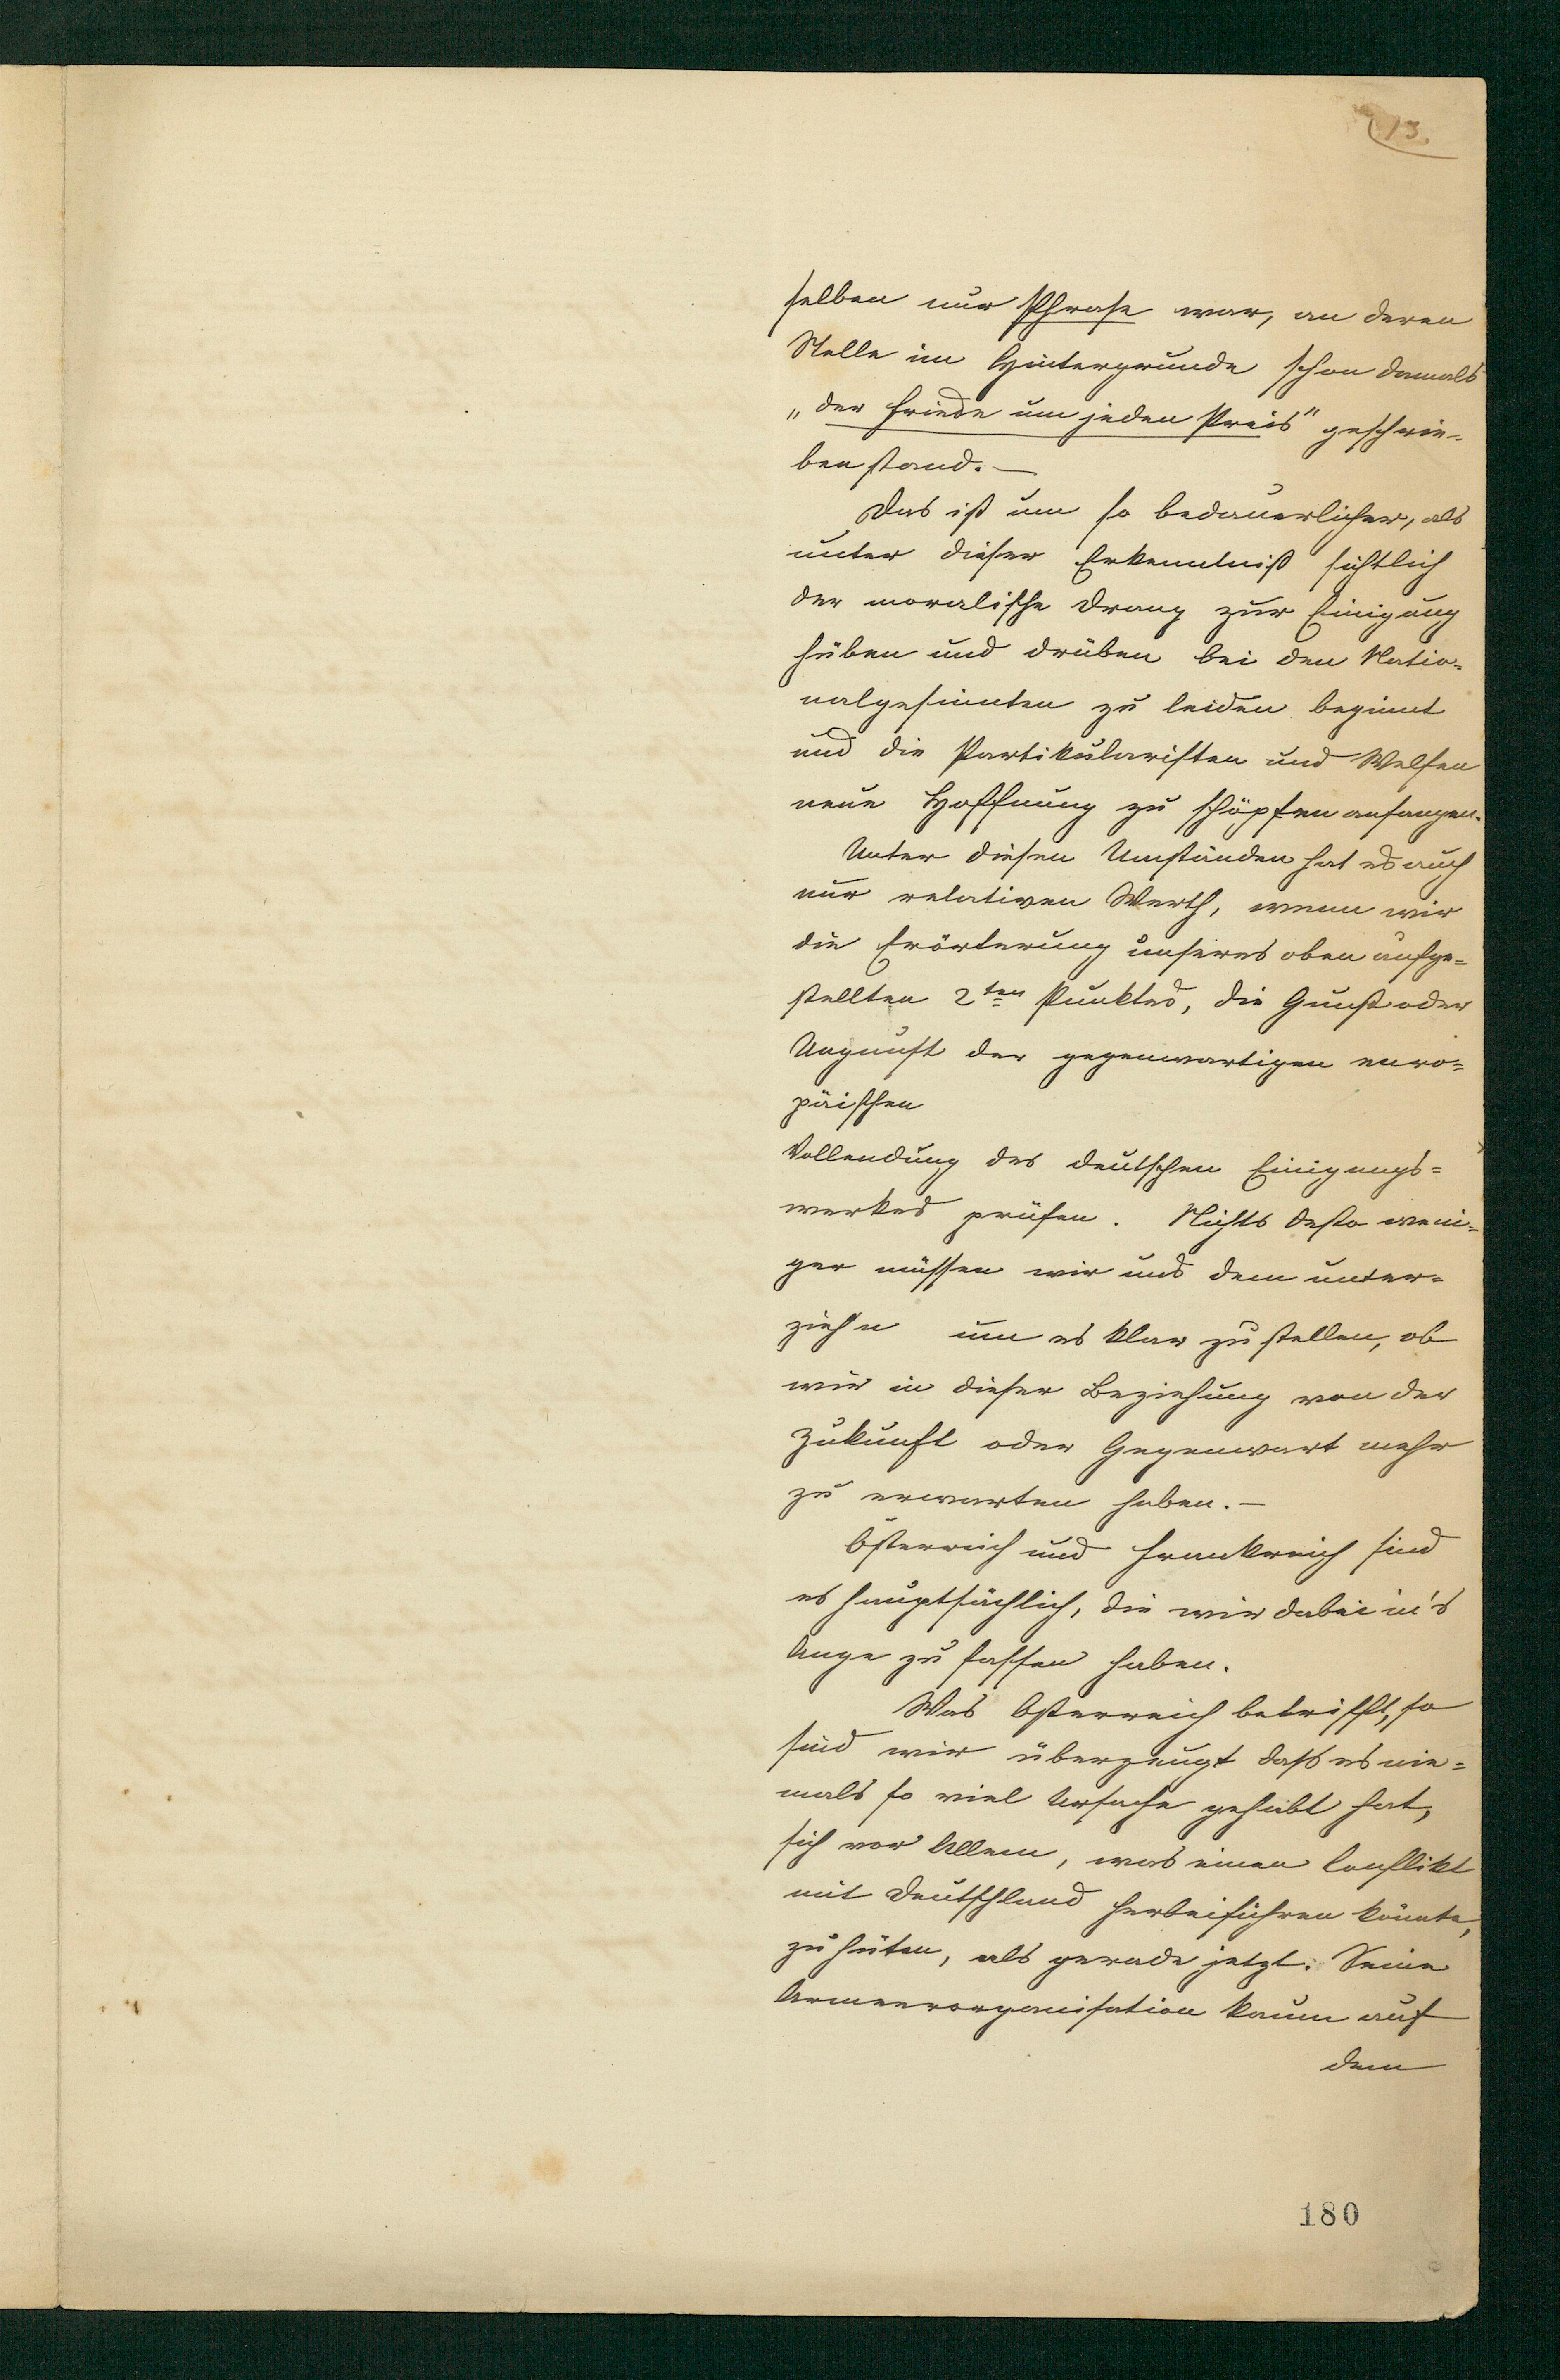 13.
selben nur Phrase war, an deren
Stelle im Hintergrunde schon damals
„der Friede um jeden Preis" geschrie-
ben stand. —
Das ist um so bedauerlicher, als
unter dieser Erkenntniß sichtlich
der moralische Drang zur Einigung
hüben und drüben bei den Natio-
nalgesinnten zu leiden beginnt
und die Partikularisten und Welfen
neue Hoffnung zu schöpfen anfangen.
Unter diesen Umständen hat es auch
nur relativen Werth, wenn wir
die Erörterung unseres oben aufge=
stellten 2ten Punktes, die Gunst oder
Ungunst der gegenwartigen euro=
päischen
Vollendung des deutschen Einigungs=
werkes prüfen. Nichts desto weni=
ger müssen wir uns dem unter=
zieh'n um es klar zu stellen, ob
wir in dieser Beziehung von der
Zukunft oder Gegenwart mehr
zu erwarten haben. —
Österreich und Frankreich sind
es hauptsächlich, die wir dabei in's
Auge zu fassen haben.
Was Österreich betrifft, so
sind wir überzeugt daß es nie=
mals so viel Ursache gehabt hat,
sich vor Allem, was einen Conflikt
mit Deutschland herbeiführen könnte,
zu hüten, als gerade jetzt. Seine
Armeereorganisation kaum auf
dem
180